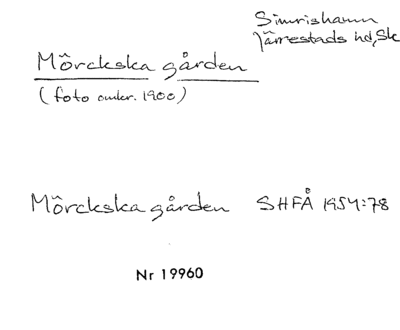 Simrishamn
Järrestads hd, Sk
Mörckska gården
(foto omkr. 1900)
Mörckska gården SHFÅ 1954:78
Nr 19960